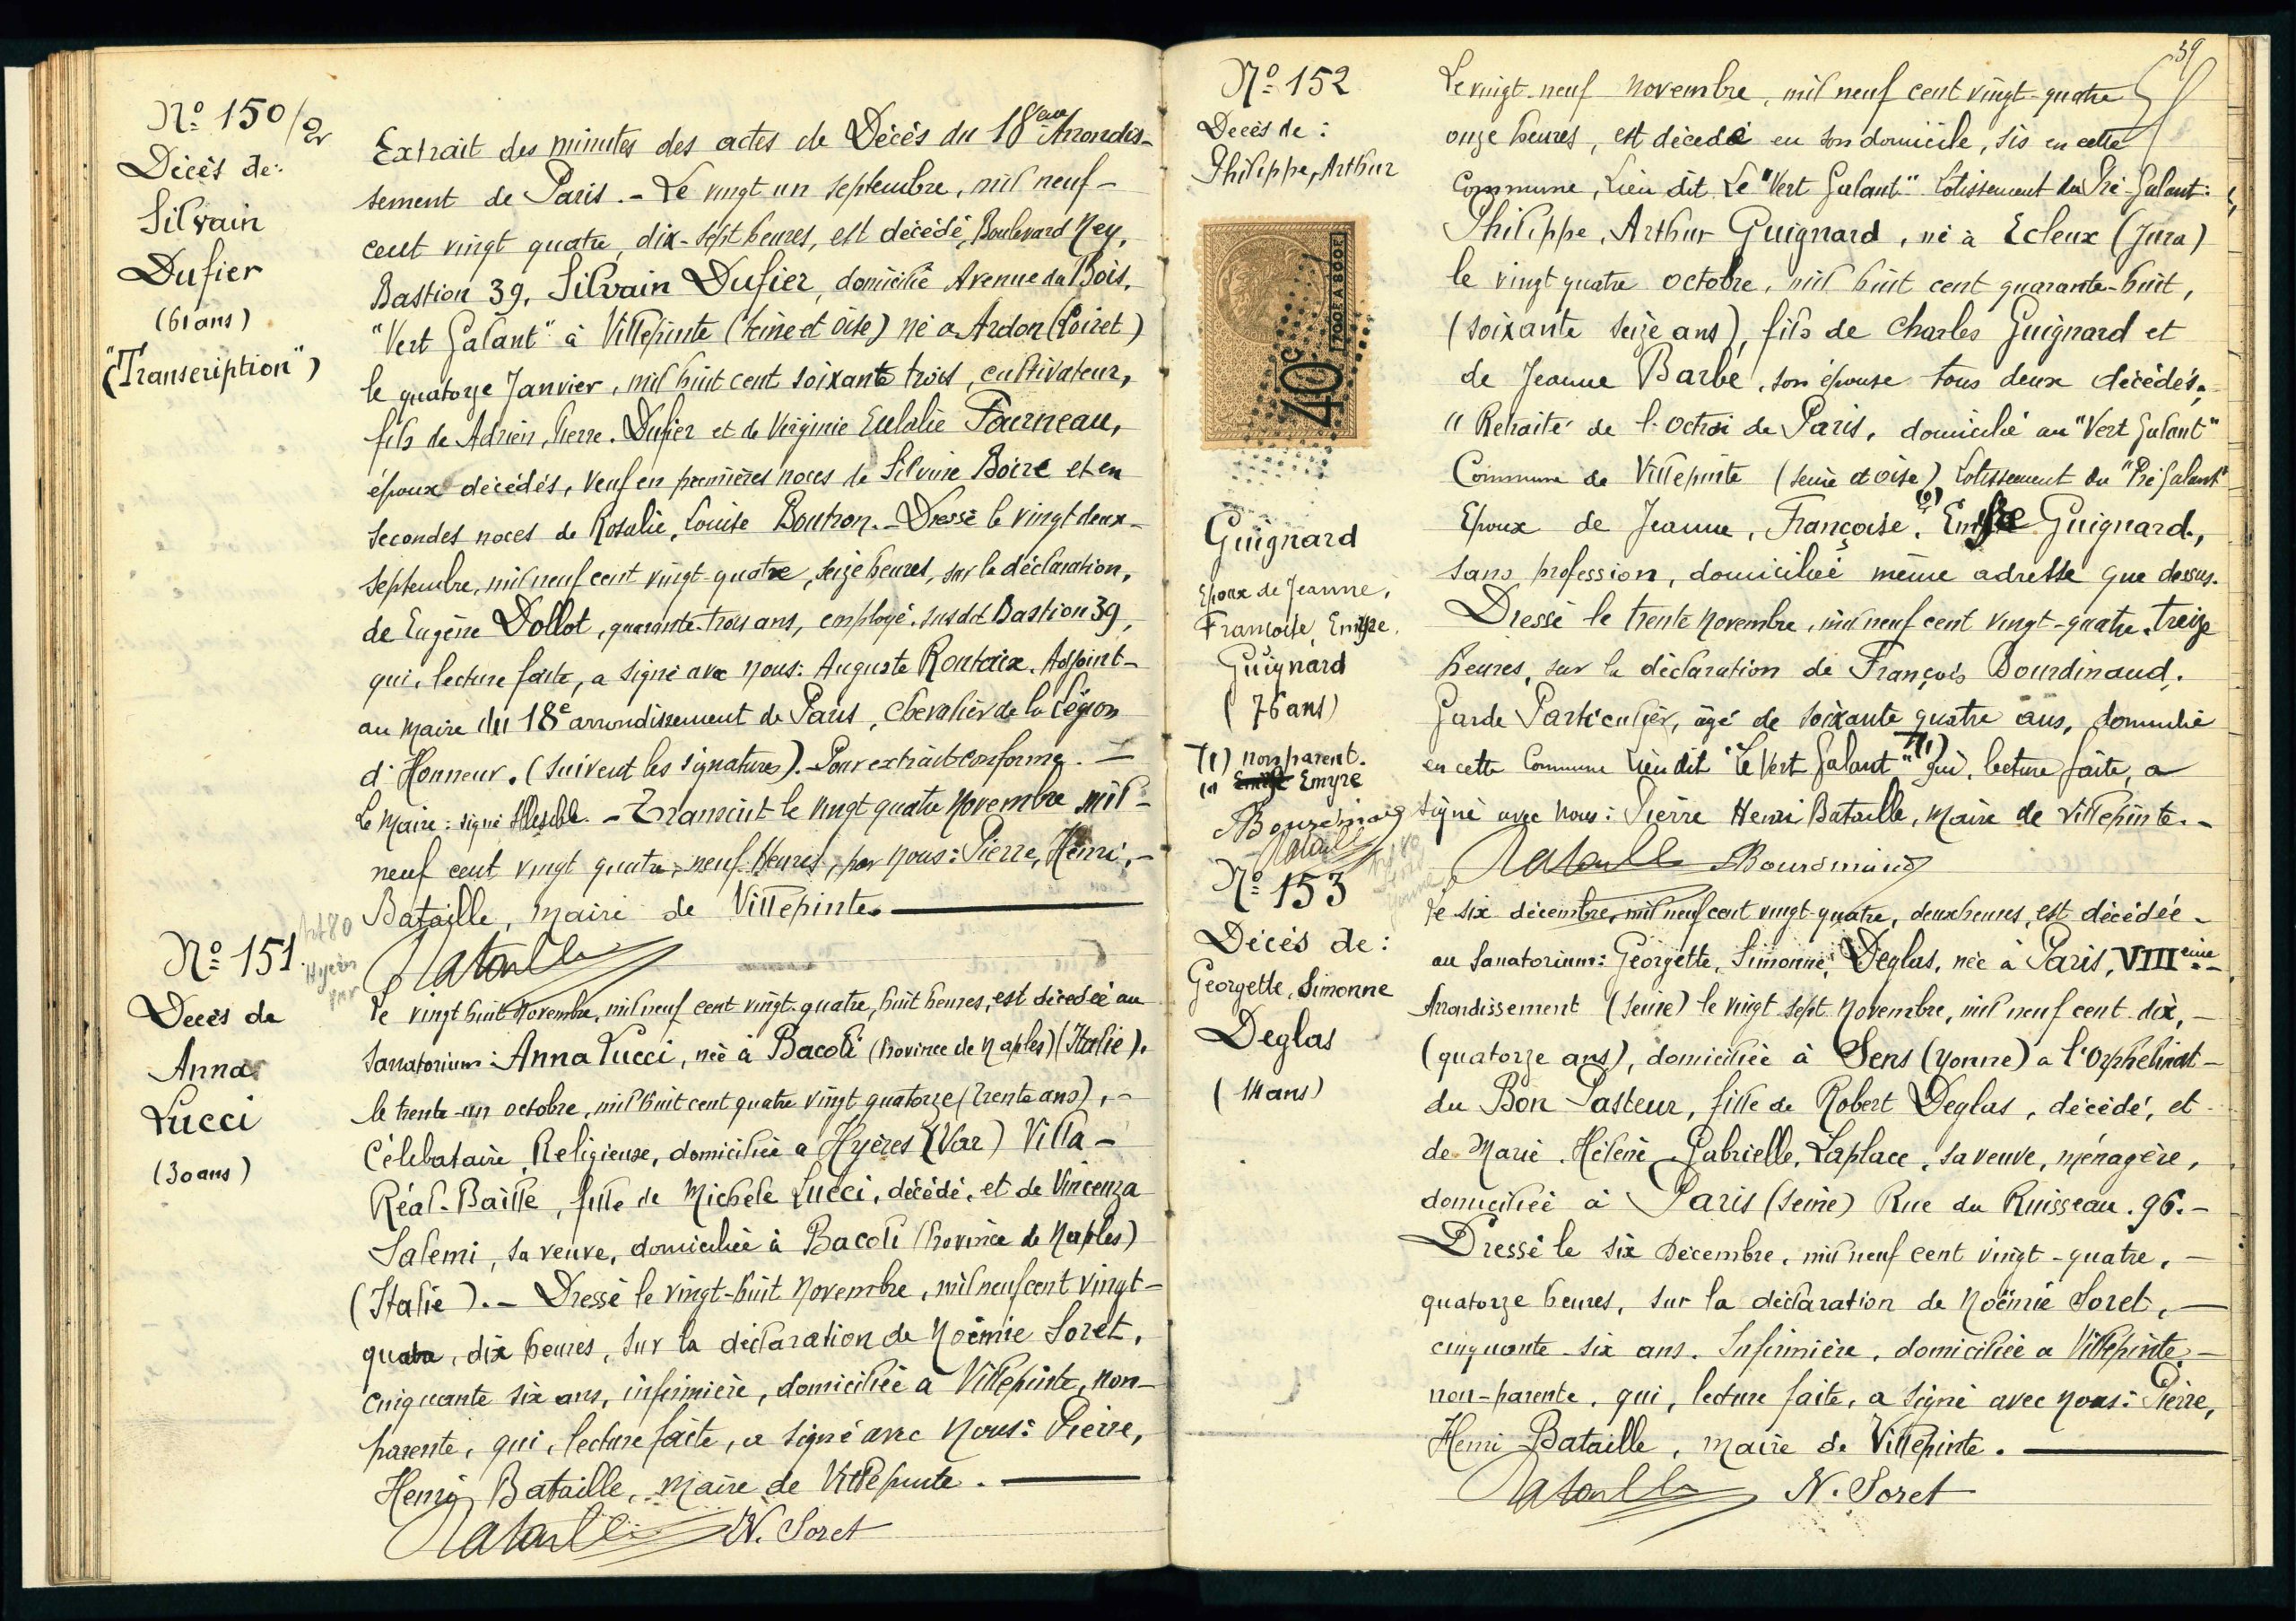 Nº 150/2
Décès de:
Silvain
Dufier
(61 ans)
("Transcription")
Extrait des minutes des actes de Décès du 18ème Arrondis-
sement de Paris. - Le vingt un septembre, mil neuf-
cent vingt quatre, dix-sept heures, est décédé, Boulevard Ney,
Bastion 39, Silvain Dufier, domicilié Avenue du Bois,
"Vert Galant" à Villepinte (Seine et Oise) né à Ardon (Loiret)
le quatorze Janvier, mil huit cent soixante trois, cultivateur,
fils de Adrien, Pierre. Dufier et de Virginie Eulalie Fourneau,
époux décédés, veuf en premières noces de Silvine Boire et en
secondes noces de Rosalie, Louise Boutron. - Dressé le vingt deux-
septembre, mil neuf cent vingt-quatre, seize heures, sur la déclaration,
de Eugène Dollot, quarante-trois ans, employé, susdit Bastion 39,
qui, lecture faite, a signé avec nous: Auguste Rontaix. Adjoint-
au maire du 18e arrondissement de Paris, chevalier de la Légion
d'Honneur. (Suivent les signatures). - Pour extrait conforme. -
Le Maire: signé Illisible. - Transcrit le vingt quatre Novembre mil-
neuf cent vingt quatre, neuf Heures, par nous: Pierre, Henri, -
Bataille, maire de Villepinte.
Bataille
Nº 151.
Art 80
Hyères
Var
Decès de
Anna
Lucci
(30 ans)
Le vingt huit Novembre, mil neuf cent vingt-quatre, huit heures, est décédée au
Sanatorium: Anna Lucci, née à Bacoli (Province de Naples) (Italie).
le trente-un octobre, mil huit cent quatre vingt quatorze (trente ans), -
Célibataire, Religieuse, domiciliée à Hyères (Var) Villa -
Réal-Baille, fille de Michele Lucci, décédé, et de Vincenza
Salemi, sa veuve, domiciliée à Bacoli (Province de Naples)
(Italie). - Dressé le vingt-huit Novembre, mil neuf cent vingt-
quatre, dix heures, sur la déclaration de Noëmie Soret,
cinquante six ans, infirmière, domiciliée à Villepinte, non-
parente, qui, lecture faite, a signé avec Nous: Pierre,
Henri Bataille, Maire de Villepinte.
Bataille N. Soret
39
Nº 152
Decès de:
Philippe, Arthur
40c
Guignard
Epoux de Jeanne,
Françoise, Emyre.
Guignard
(76 ans)
(1) non parent.
(2) Emyre
Bourdinaud
Bataille
Le vingt-neuf Novembre, mil neuf cent vingt-quatre
onze heures, est décédé en son domicile, sis en cette
Commune, Lieu dit Le "Vert Galant" Lotissement du Pré-Galant:
Philippe, Arthur Guignard, né à Ecleux (Jura)
le vingt quatre octobre, mil huit cent quarante-huit,
(soixante seize ans), fils de Charles Guignard et
de Jeanne Barbe, son épouse tous deux décédés.
" Retraité de l'octroi de Paris, domicilié au "Vert Galant"
Commune de Villepinte (Seine et Oise) Lotissement du "Pré Galant"
Epoux de Jeanne, Françoise, (2) Guignard.,
sans profession, domiciliée même adresse que dessus.
Dressé le trente Novembre, mil neuf cent vingt-quatre, treize
heures, sur la déclaration de François Bourdinaud.
Garde Particulier, âgé de soixante quatre ans, domicilié
en cette Commune Lieu dit "Le Vert Galant" (1) qui, lecture faite, a
signé avec nous: Pierre Henri Bataille, Maire de Villepinte. -
Bataille Bourdinaud
Nº 153
Art 80
Sens
Yonne
Décès de:
Georgette, Simonne
Deglas
(14 ans)
Le six décembre, mil neuf cent vingt-quatre, deux heures, est décédée -
au Sanatorium: Georgette, Simonne, Deglas, née à Paris, VIIIeme -
Arrondissement (Seine) le vingt sept Novembre, mil neuf cent dix, -
(quatorze ans), domiciliée à Sens (Yonne) à l'Orphelinat -
du Bon Pasteur, fille de Robert Deglas, décédé, et
de Marie, Hélène, Gabrielle, Laplace, sa veuve, ménagère,
domiciliée à Paris (Seine) Rue du Ruisseau. 96. -
Dressé le six Décembre, mil neuf cent vingt-quatre, -
quatorze heures, sur la déclaration de Noëmie Soret, -
cinquante-six ans. Infirmière, domiciliée à Villepinte, -
non-parente, qui, lecture faite, a signé avec Nous: Pierre,
Henri Bataille, maire de Villepinte.
Bataille N. Soret